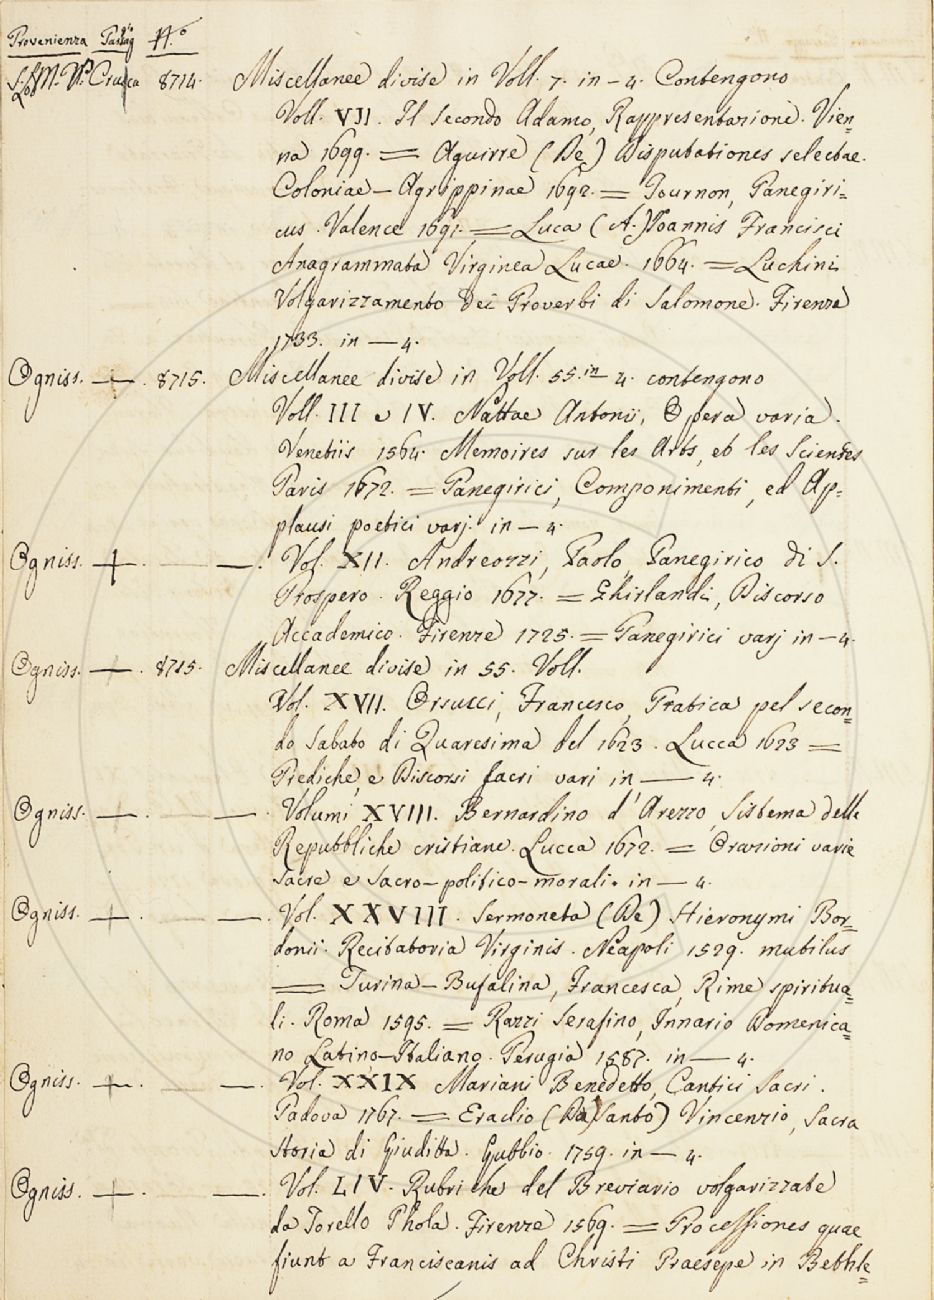 Provenienza Pal. N.º
8714. Miscellanee divise in Voll. 7. in - 4. Contengono
Voll. VII. Il Secondo Adamo, Rappresentazione. Vien=
na 1699. = Aguirre (De) Disputationes selectae.
Coloniae - Agrippinae 1692. = Tournon, Panegiri=
cus. Valence 1691. = Luca (A.) Joannis Francisci
Anagrammata Virginea Lucae. 1664. = Luchini
Volgarizzamento dei Proverbi di Salomone. Firenze
1733. in - 4.
Ogniss. + . 8715. Miscellanee divise in Voll. 55. in 4. contengono
Voll. III e IV. Nattae Antonii, Opera varia.
Venetiis 1564. Memoires sur les Arts, et les Sciences
Paris 1672. = Panegirici, Componimenti, ed Ap=
plausi poetici varj. in - 4.
Ogniss. + . — — . Vol. XII. Andreozzi, Paolo, Panegirico di S.
Prospero. Reggio 1677. = Ghirlandi, Discorso
Accademico. Firenze 1725. = Panegirici varj in - 4.
Ogniss. + . 8715. Miscellanee divise in 55. Voll.
Vol. XVII. Orsucci, Francesco, Pratica pel secon=
do Sabato di Quaresima del 1623. Lucca 1623 =
Prediche, e Discorsi sacri vari in — 4.
Ogniss. + . — — . Volumi XVIII. Bernardino d'Arezzo, Sistema delle
Repubbliche cristiane. Lucca 1672. = Orazioni varie
sacre e sacro-politico-morali. in — 4.
Ogniss. + . — — . Vol. XXVIII. Sermoneta (De) Hieronymi Bor=
donii. Recitatoria Virginis. Neapoli 1529. mutilus
= Turina - Bufalina, Francesca, Rime spiritua=
li. Roma 1595. = Razzi Serafino, Innario Domenica=
no Latino-Italiano. Perugia 1587. in — 4.
Ogniss. + . — — . Vol. XXIX Mariani Benedetto, Cantici Sacri.
Padova 1767. = Eraclio (Da Santo) Vincenzio, Sacra
Storia di Giuditta. Gubbio. 1759. in — 4.
Ogniss. + . — . Vol. LIV. Rubriche del Breviario volgarizzate
da Torello Phola. Firenze 1569. = Processiones quae
fiunt a Franciscanis ad Christi Praesepe in Bethle=